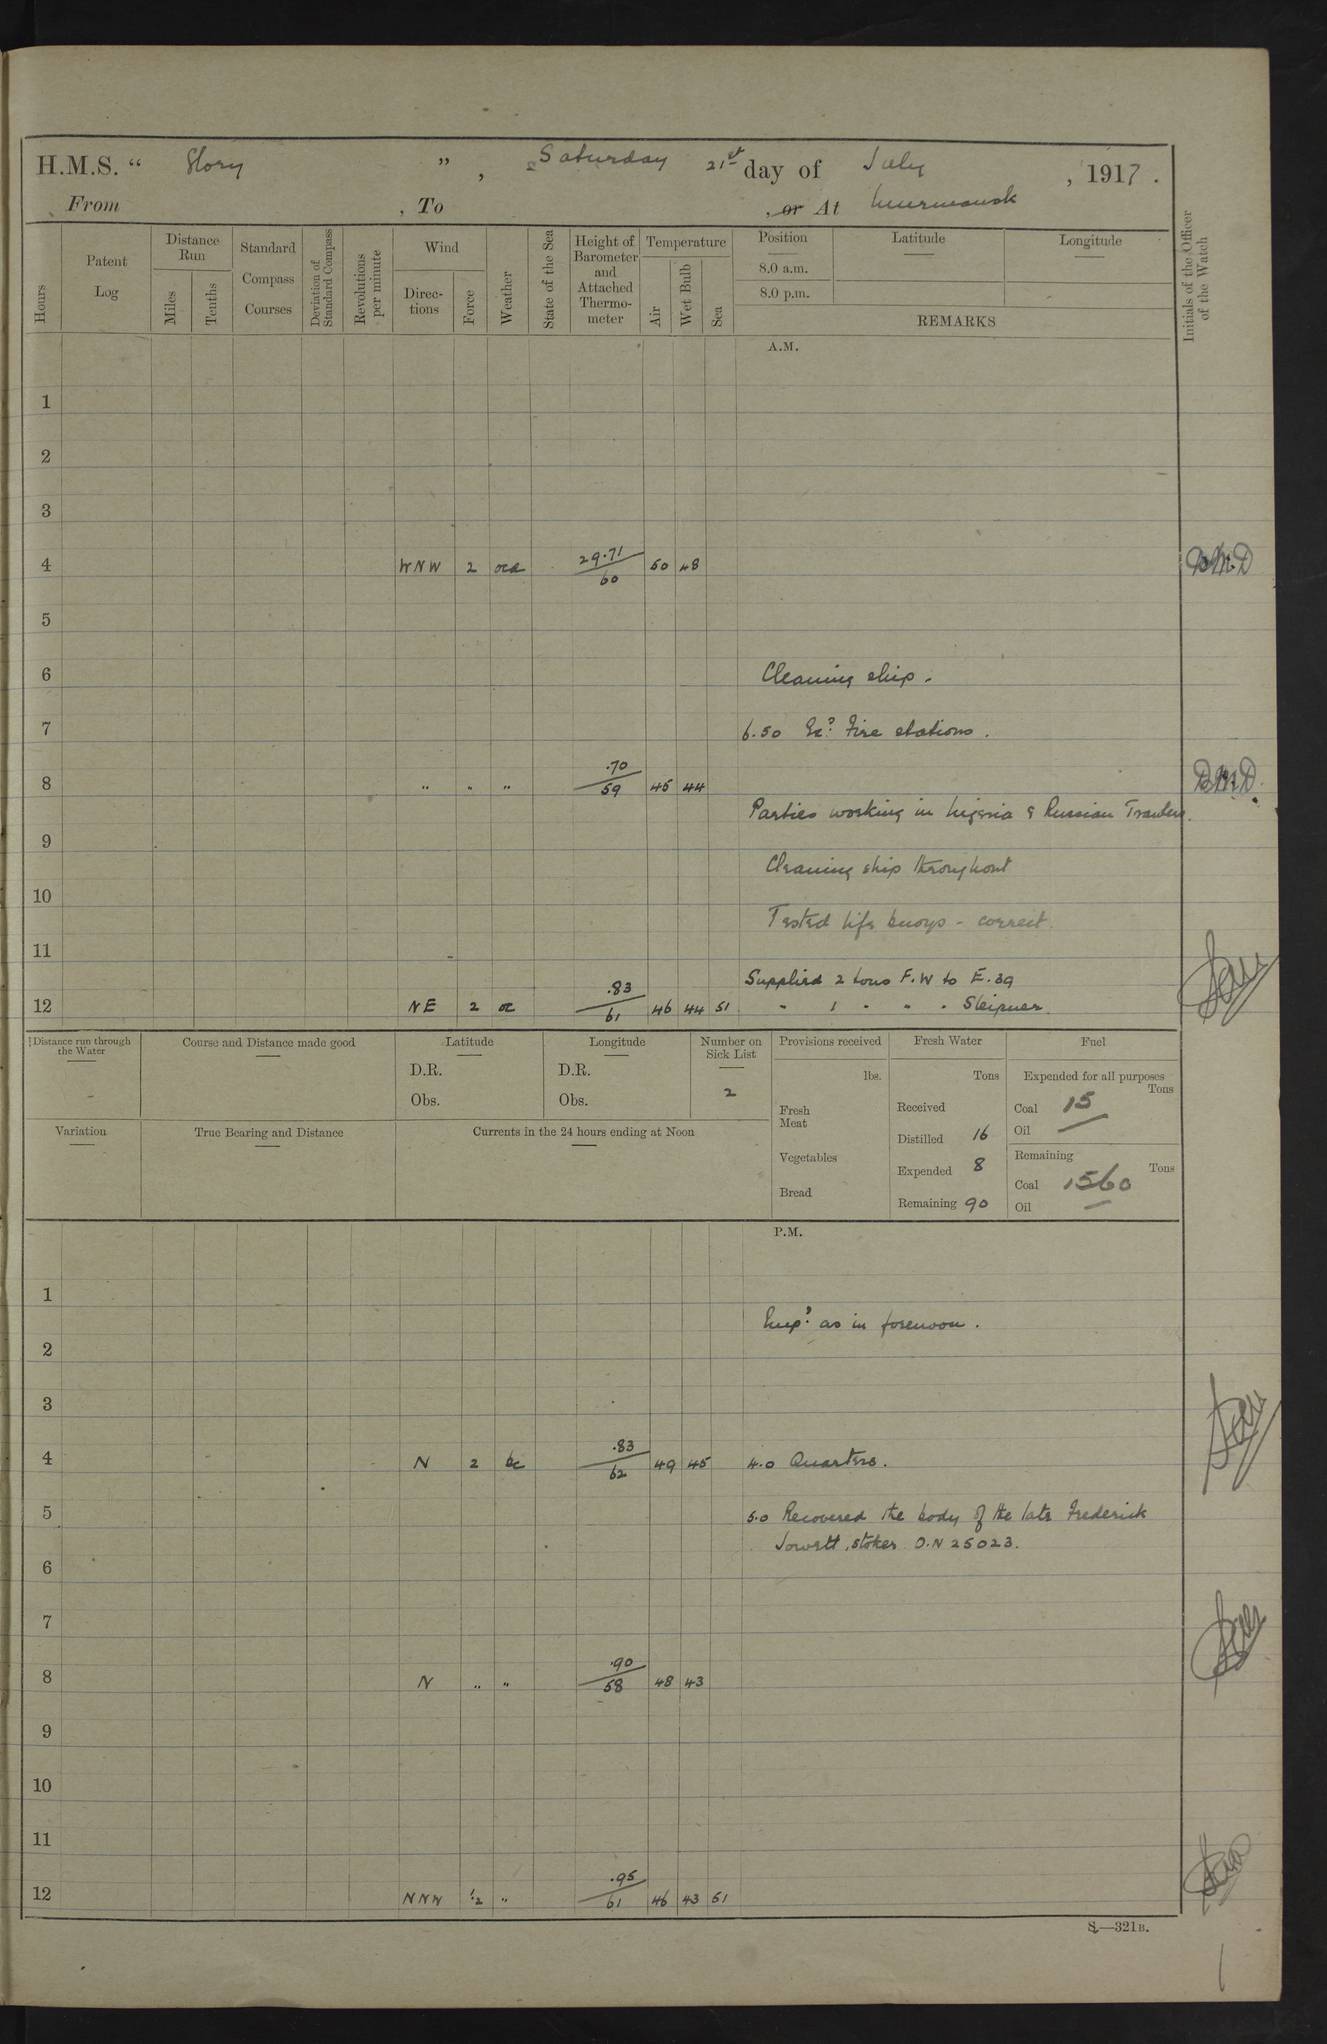 H.M.S. “ Glory ” , Saturday 21st day of July , 1917 .
From , To , or At Murmansk
Hours
Patent Log
Distance Run
Miles
Tenths
Standard Compass Courses
Deviation of Standard Compass
Revolutions per minute
Wind
Directions
Force
Weather
State of the Sea
Height of Barometer and Attached Thermometer
Temperature
Air
Wet Bulb
Sea
Position
8.0 a.m.
8.0 p.m.
Latitude
Longitude
REMARKS
Initials of the Officer of the Watch
A.M.
1
2
3
4 WNW 2 ocd 29.71/60 50 48
5
6 Cleaning ship.
7 6.50 Exd. Fire stations.
8 " " " .70/59 45 44
Parties working in Nigeria & Russian Trawlers.
9
Cleaning ship throughout
10
Tested life buoys - correct.
11
Supplied 2 tons F.W to E.39
12 NE 2 oc .83/61 46 44 51 " 1 " " " Sleipner.
Distance run through the Water
Course and Distance made good
Latitude
D.R.
Obs.
Longitude
D.R.
Obs.
Number on Sick List
2
Provisions received
lbs.
Fresh Meat
Vegetables
Bread
Fresh Water
Tons
Received
Distilled 16
Expended 8
Remaining 90
Fuel
Expended for all purposes
Tons
Coal 15
Oil —
Remaining
Tons
Coal 1560
Oil —
Variation
True Bearing and Distance
Currents in the 24 hours ending at Noon
P.M.
1
Empd. as in forenoon.
2
3
4 N 2 bc .83/62 49 45 4.0 Quarters.
5 5.0 Recovered the body of the late Frederick
Jowett, stoker O.N 25023.
6
7
8 N " " .90/58 48 43
9
10
11
12 NNW ½ " .95/61 46 43 51
S.—321B.